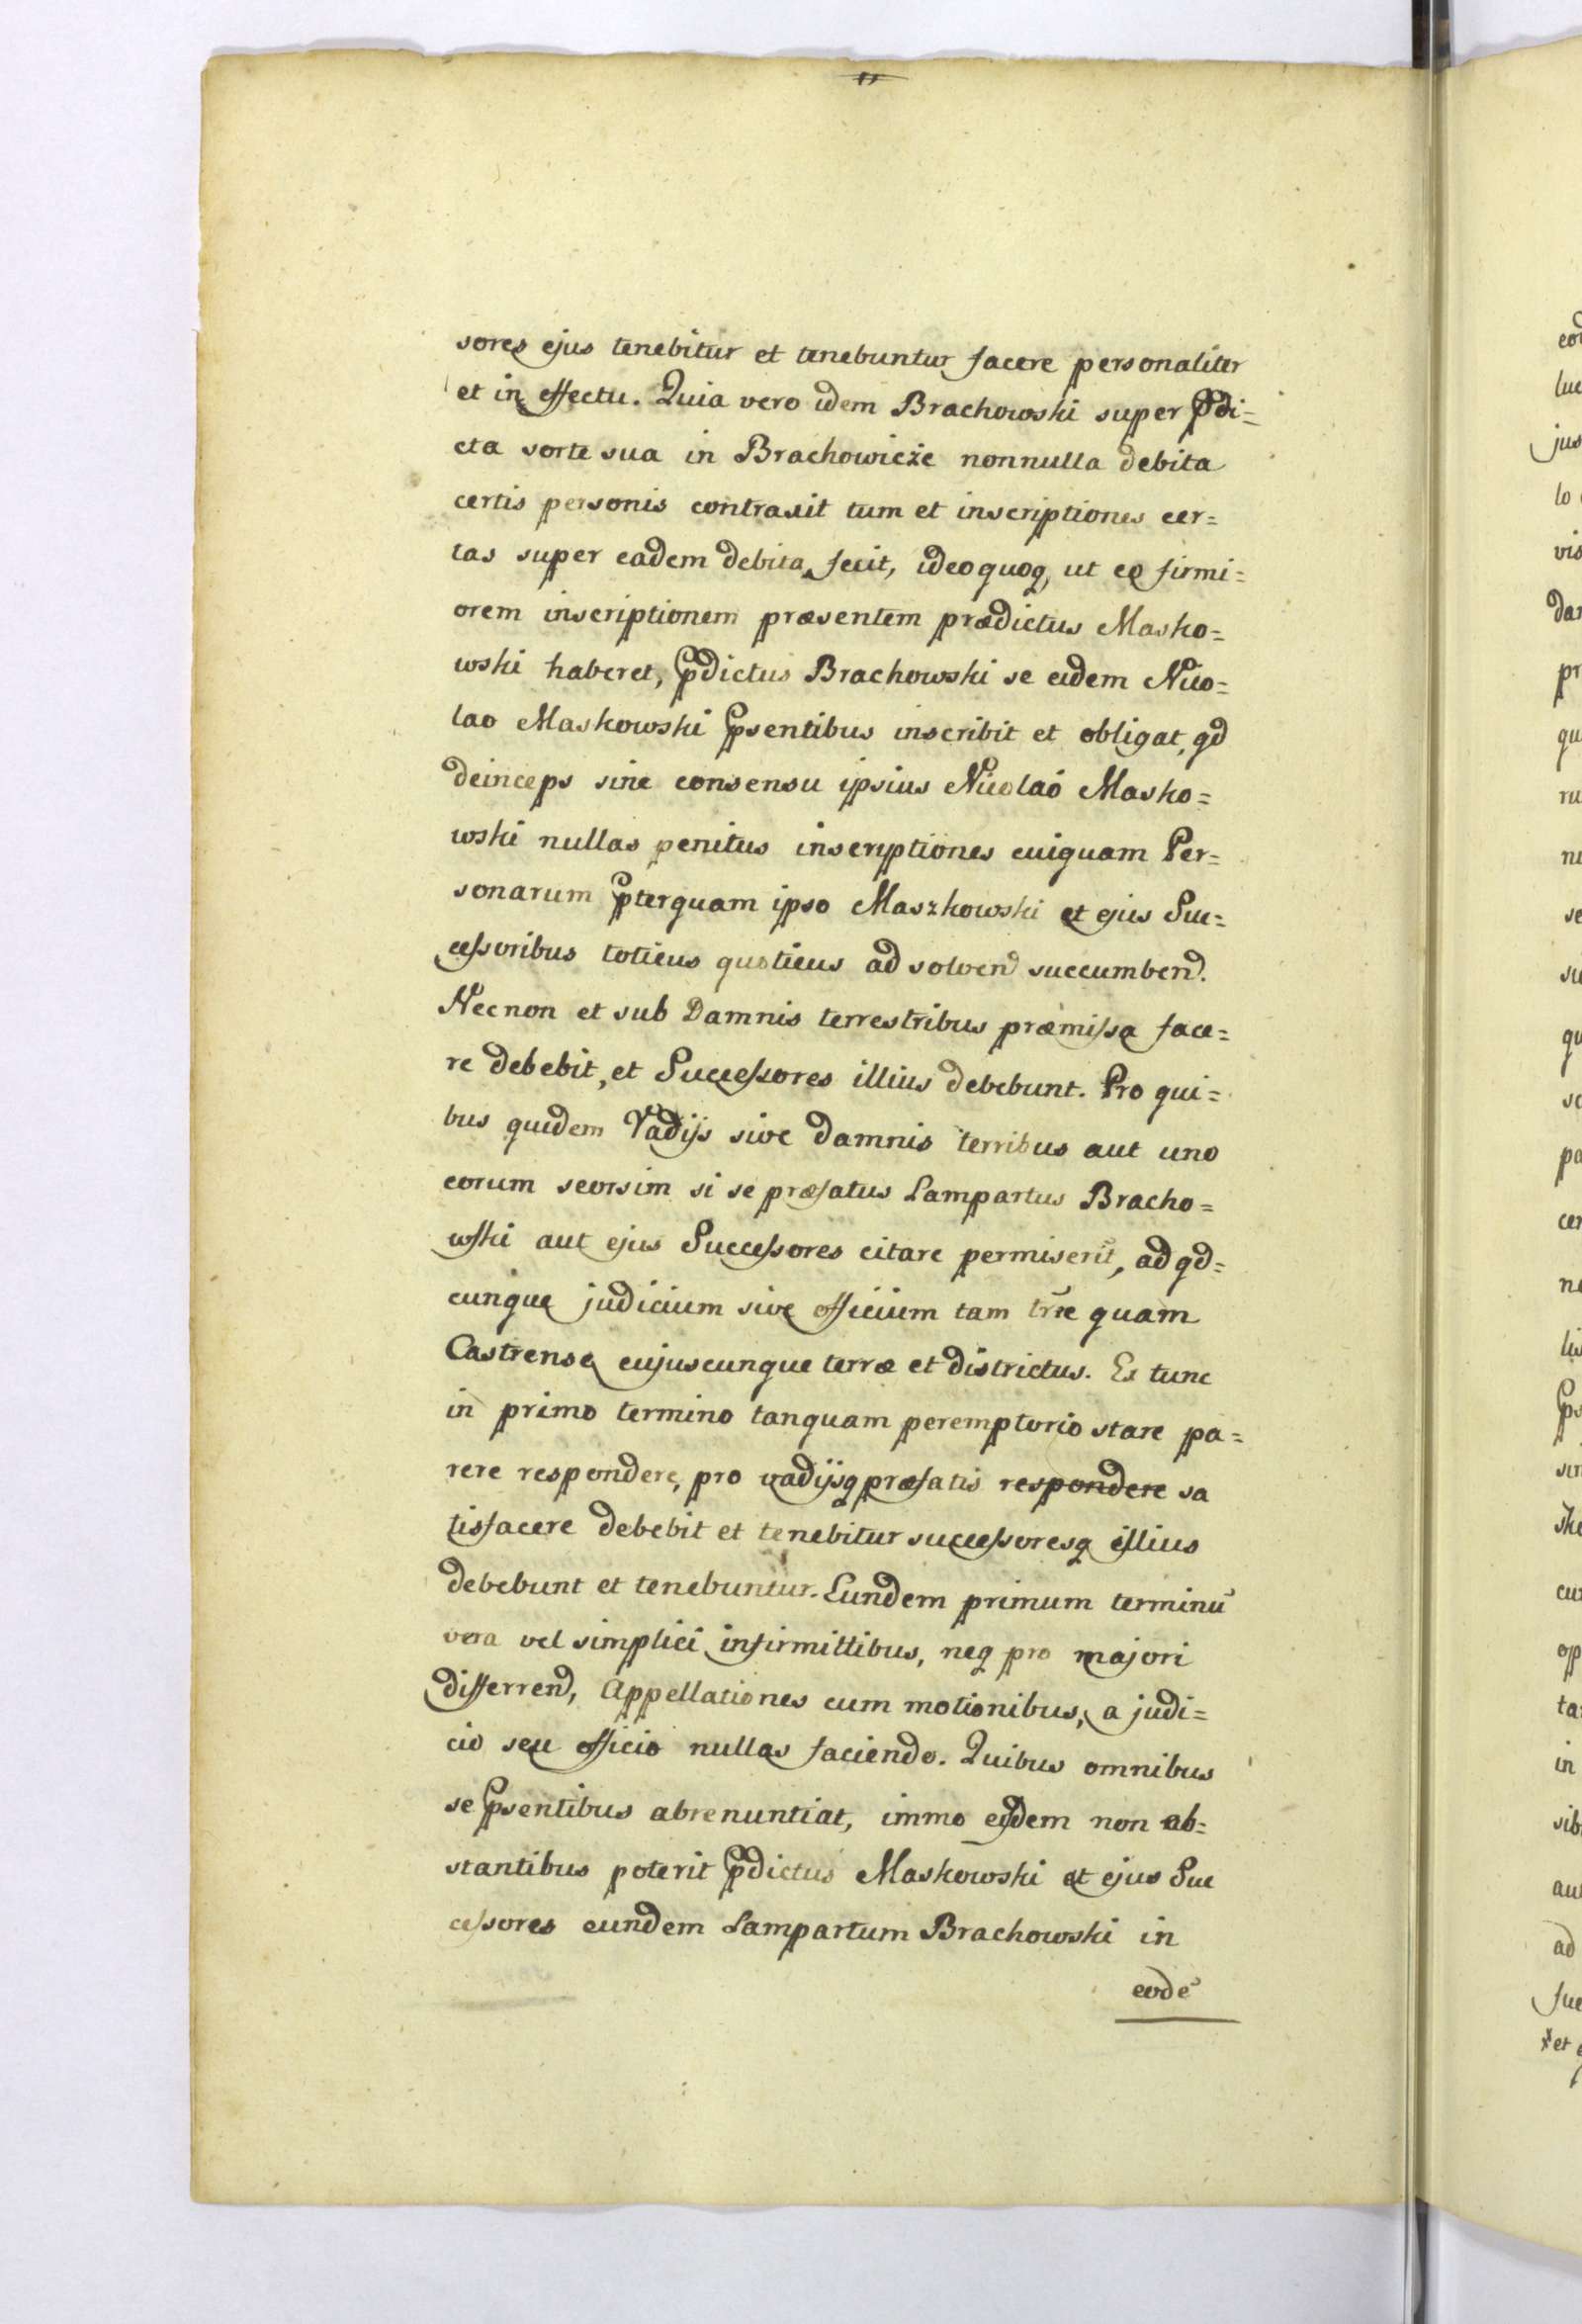 sores ejus tenebitur et tenebuntur facere personaliter
et in effectu. Quia vero idem Brachowski super Pdi=
cta sorte sua in Brachowicze nonnulla debita
certis personis contraxit tum et inscriptiones cer=
tas super eadem debita fecit, ideoquoq, ut eo firmi=
orem inscriptionem præsentem prædictus Masko=
wski haberet, Pdictus Brachowski se eidem Nico=
lao Maskowski Psentibus inscribit et obligat, qd
deinceps sine consensu ipsius Nicolai Masko=
wski nullas penitus inscriptiones cuiquam Per=
sonarum Pterquam ipso Maszkowski et ejus Suc=
cessoribus toties quoties ad solvend succumbend.
Necnon et sub Damnis terrestribus præmissa face=
re debebit, et Successores illius debebunt. Pro qui=
bus quidem Vadijs sive damnis terribus aut uno
eorum seorsim si se præfatus Lampartus Bracho=
wski aut ejus Successores citare permiserit, ad qd=
cunque judicium sive officium tam trre quam
Castrense cujuscunque terræ et districtus. Ex tunc
in primo termino tanquam peremptorio stare pa=
rere respondere, pro vadijsq præfatis respondere sa
tisfacere debebit et tenebitur successoresq illius
debebunt et tenebuntur. Eundem primum terminū
vera vel simplici infirmittibus, neq pro majori
differrend, Appellationes cum motionibus, a judi=
cio seu officio nullas faciendo. Quibus omnibus
se Psentibus abrenuntiat, immo eisdem non ob=
stantibus poterit Pdictus Maskowski et ejus Suc
cessores eundem Lampartum Brachowski in
eodē